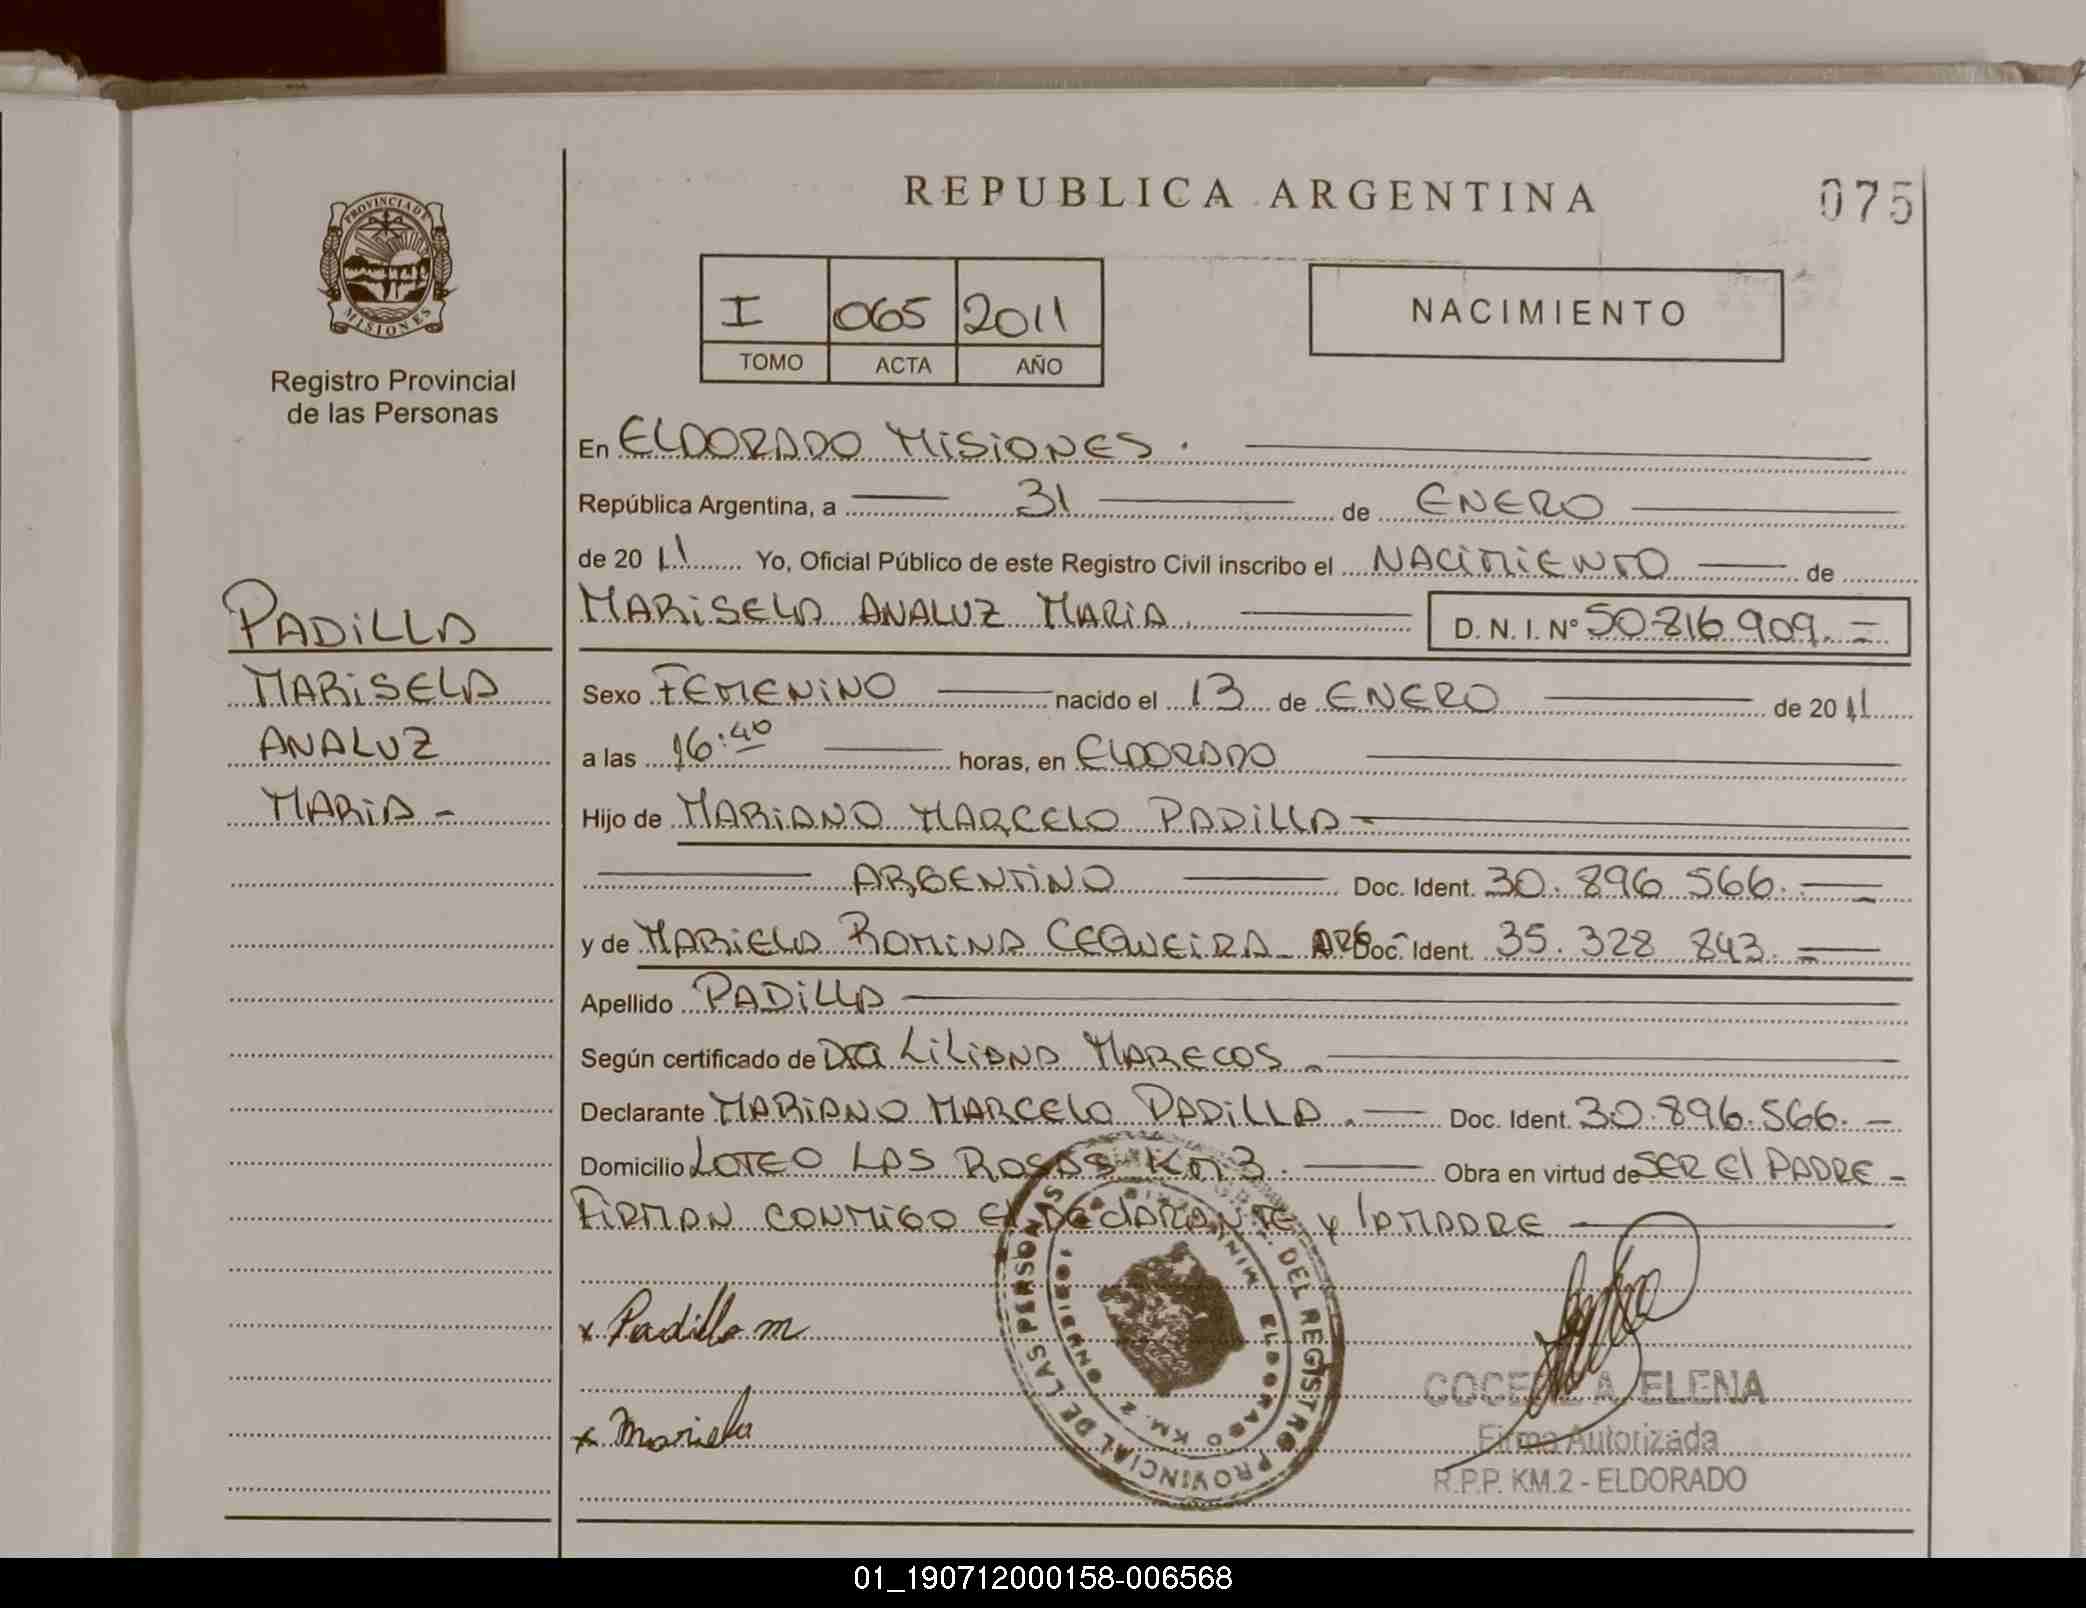 REPUBLICA ARGENTINA
075
PROVINCIA DE
MISIONES
Registro Provincial
de las Personas
I 065 2011
TOMO ACTA AÑO
NACIMIENTO
En ELDORADO MISIONES.
República Argentina, a 31 de ENERO
de 2011 Yo, Oficial Público de este Registro Civil inscribo el NACIMIENTO de
MARISELA ANALUZ MARIA D. N. I. Nº 50.816.909.=
PADILLA
MARISELA
ANALUZ
MARIA -
Sexo FEMENINO nacido el 13 de ENERO de 2011
a las 16:40 horas, en ELDORADO
Hijo de MARIANO MARCELO PADILLA-
ARGENTINO Doc. Ident. 30.896.566.
y de MARIELA ROMINA CEQUEIRA- ARG- Doc. Ident. 35.328.843.=
Apellido PADILLA
Según certificado de DRA LILIANA MARECOS.
Declarante MARIANO MARCELO PADILLA. Doc. Ident. 30.896.566.-
Domicilio LOTEO LAS ROSAS KM3. Obra en virtud de SER El PADRE-
FIRMAN CONMIGO El DEClARANTE y lA MADRE
x Padilla m
x Mariela
DEL REGISTRO PROVINCIAL DE LAS PERSONAS
ELDORADO KM. 2
ELENA
Firma Autorizada
R.P.P. KM.2 - ELDORADO
01_190712000158-006568